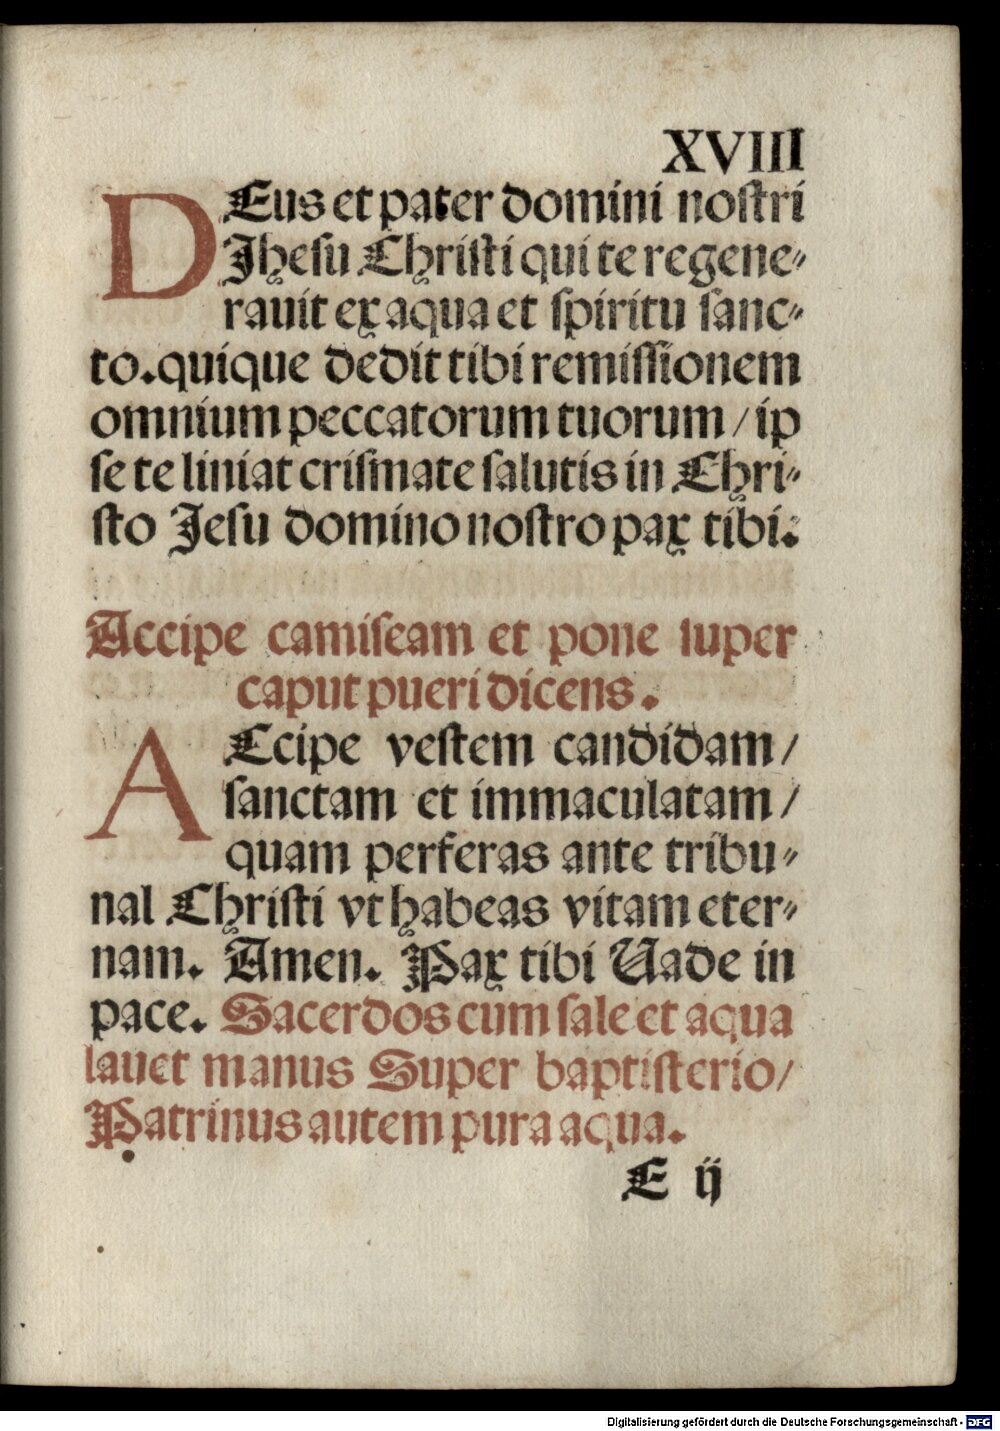 XVIII
DEus et pater domini nostri
Jhesu Christi qui te regene⸗
rauit ex aqua et spiritu sanc⸗
to. quique dedit tibi remissionem
omnium peccatorum tuorum / ip
se te liniat crismate salutis in Chri⸗
sto Jesu domino nostro pax tibi.
Accipe camiseam et pone super
caput pueri dicens.
ACcipe vestem candidam /
sanctam et immaculatam /
quam perferas ante tribu⸗
nal Christi vt habeas vitam eter⸗
nam. Amen. Pax tibi Uade in
pace. Sacerdos cum sale et aqua
lauet manus Super baptisterio /
Patrinus autem pura aqua.
E ij
Digitalisierung gefördert durch die Deutsche Forschungsgemeinschaft - DFG